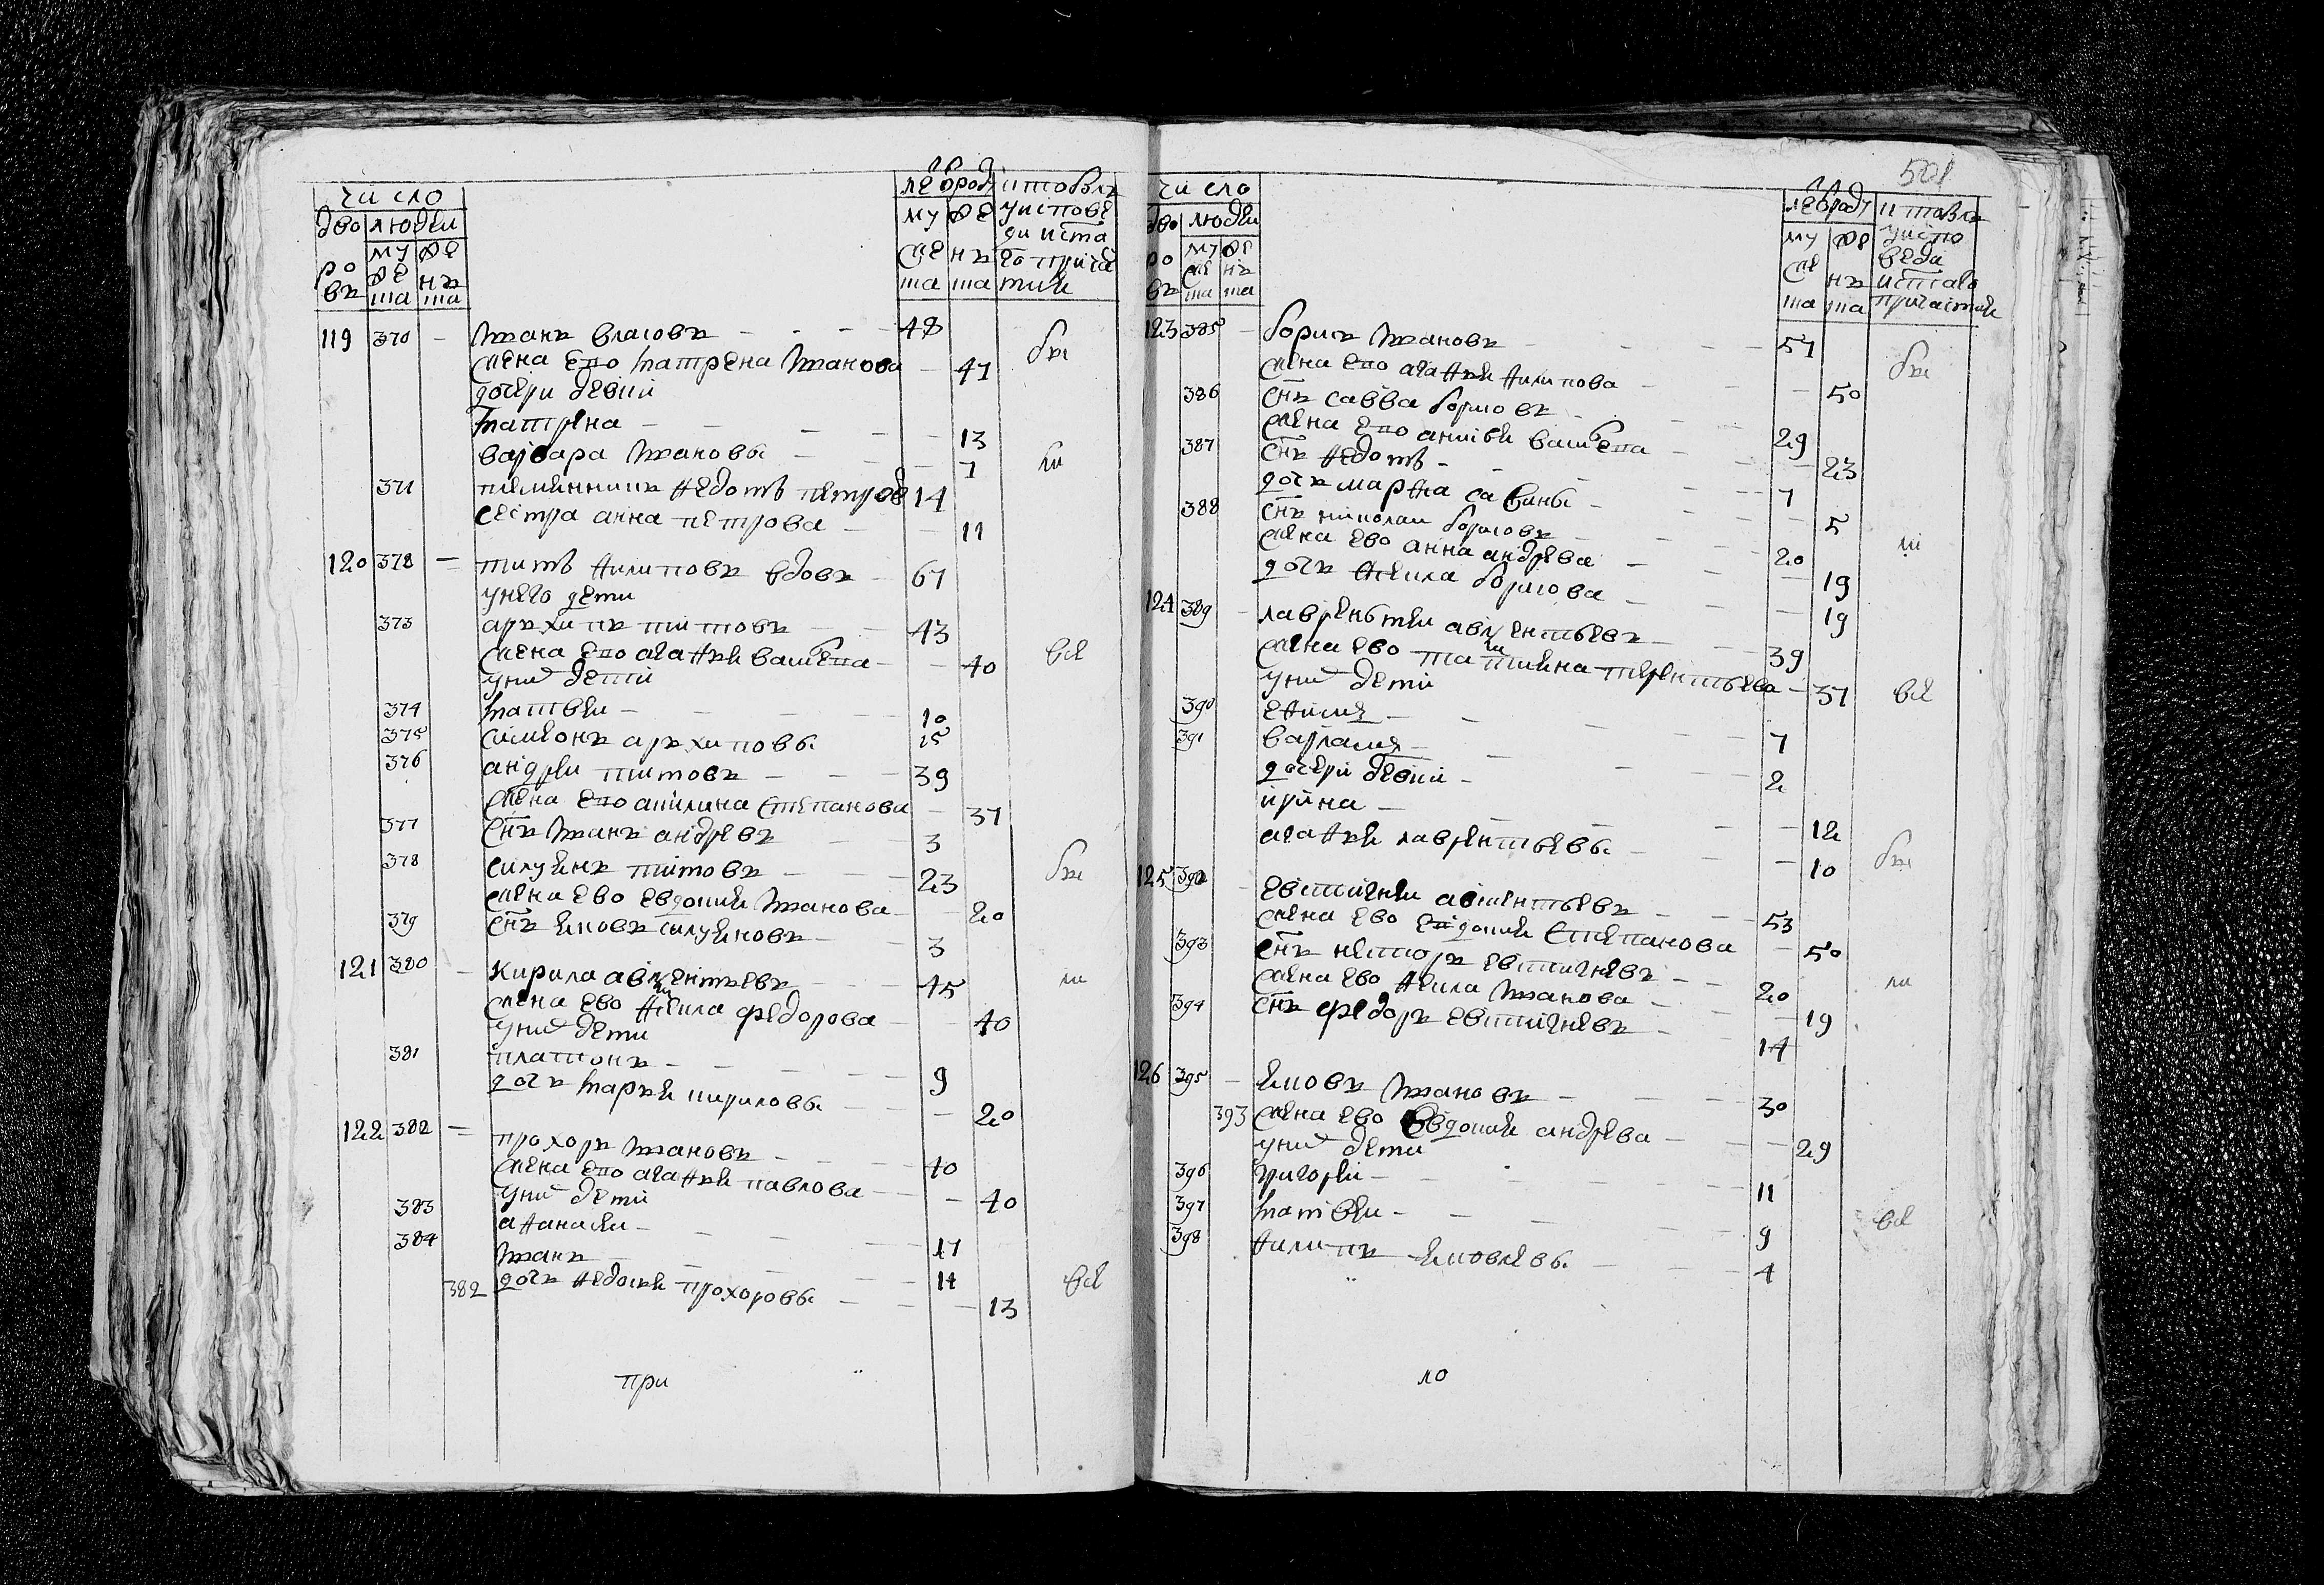 число
лето род и то были
дво людеи
му же у испове
ди и ста
ро му же
же нъ го прича
въ ша ша
ша ша тия
119 370 – Иванъ власовъ – 48
жена ево матрена Иванова – 47 были
дочери девки
матрена – 13
варвара Ивановы – 7
371 племянникъ федотъ петров 14
сестра анна петрова – 11
120 378 – титъ филиповъ вдовъ – 67
у него дети
373 архипъ титовъ – 43
жена ево агафья васил ева – 40 все
у них дети
374 матвеи – 10
375 симионъ архиповы 15
376 андреи титовъ – 39
жена ево акилина степанова – 37
377 снъ Иванъ андревъ 3
378 силуянъ титовъ – 23 были
жена ево евдокия Иванова – 20
379 снъ яковъ силуяновъ – 3
121 380 – кирила авксентьевъ – 45
жена ево фекла федорова – 40
у них дети
381 платонъ – 9
дочь марья кириловы – 20
122 382 – прохоръ Ивановъ – 40
жена ево агафья павлова – 40
у них дети
383 афанасеи – 17
384 Иванъ 14
382 дочь федосья прохоровы – 13 все
при
501
число
лето роду и то были
дво людеи
му же у испо
веди
ро му же
же нъ и стаго
въ ша ша
ша ша причастия
123 385 – борисъ Ивановъ – 57
жена ево агафья филипова – 50 были
386 снъ савва борисовъ – 29
жена ево анисья васил ева – 23
387 снъ федотъ – 7
дочь марфа савины – 5
388 снъ николаи борисовъ – 20
жена ево анна андрева – 19
дочь фекла борисова – 19
124 389 – лаврентеи авксентьевъ – 39
жена ево татияна терентьева – 37 все
у них дети
390 ефимъ – 7
391 варламъ – 2
дочери девки –
ирина – 12
агафья лаврентьевы – 10 были
125 392 – евстигнеи авксентьевъ – 53
жена ево евдокия степанова – 50
393 снъ несторъ евстигневъ – 20
жена ево фекла Иванова – 19
394 снъ федоръ евстигневъ – 14
126 395 – яковъ Ивановъ – 30
393 жена ево Евдокия андрева – 29
у них дети
396 григореи – 11
397 матвеи – 9 все
398 филипъ яковлевы – 4
ло